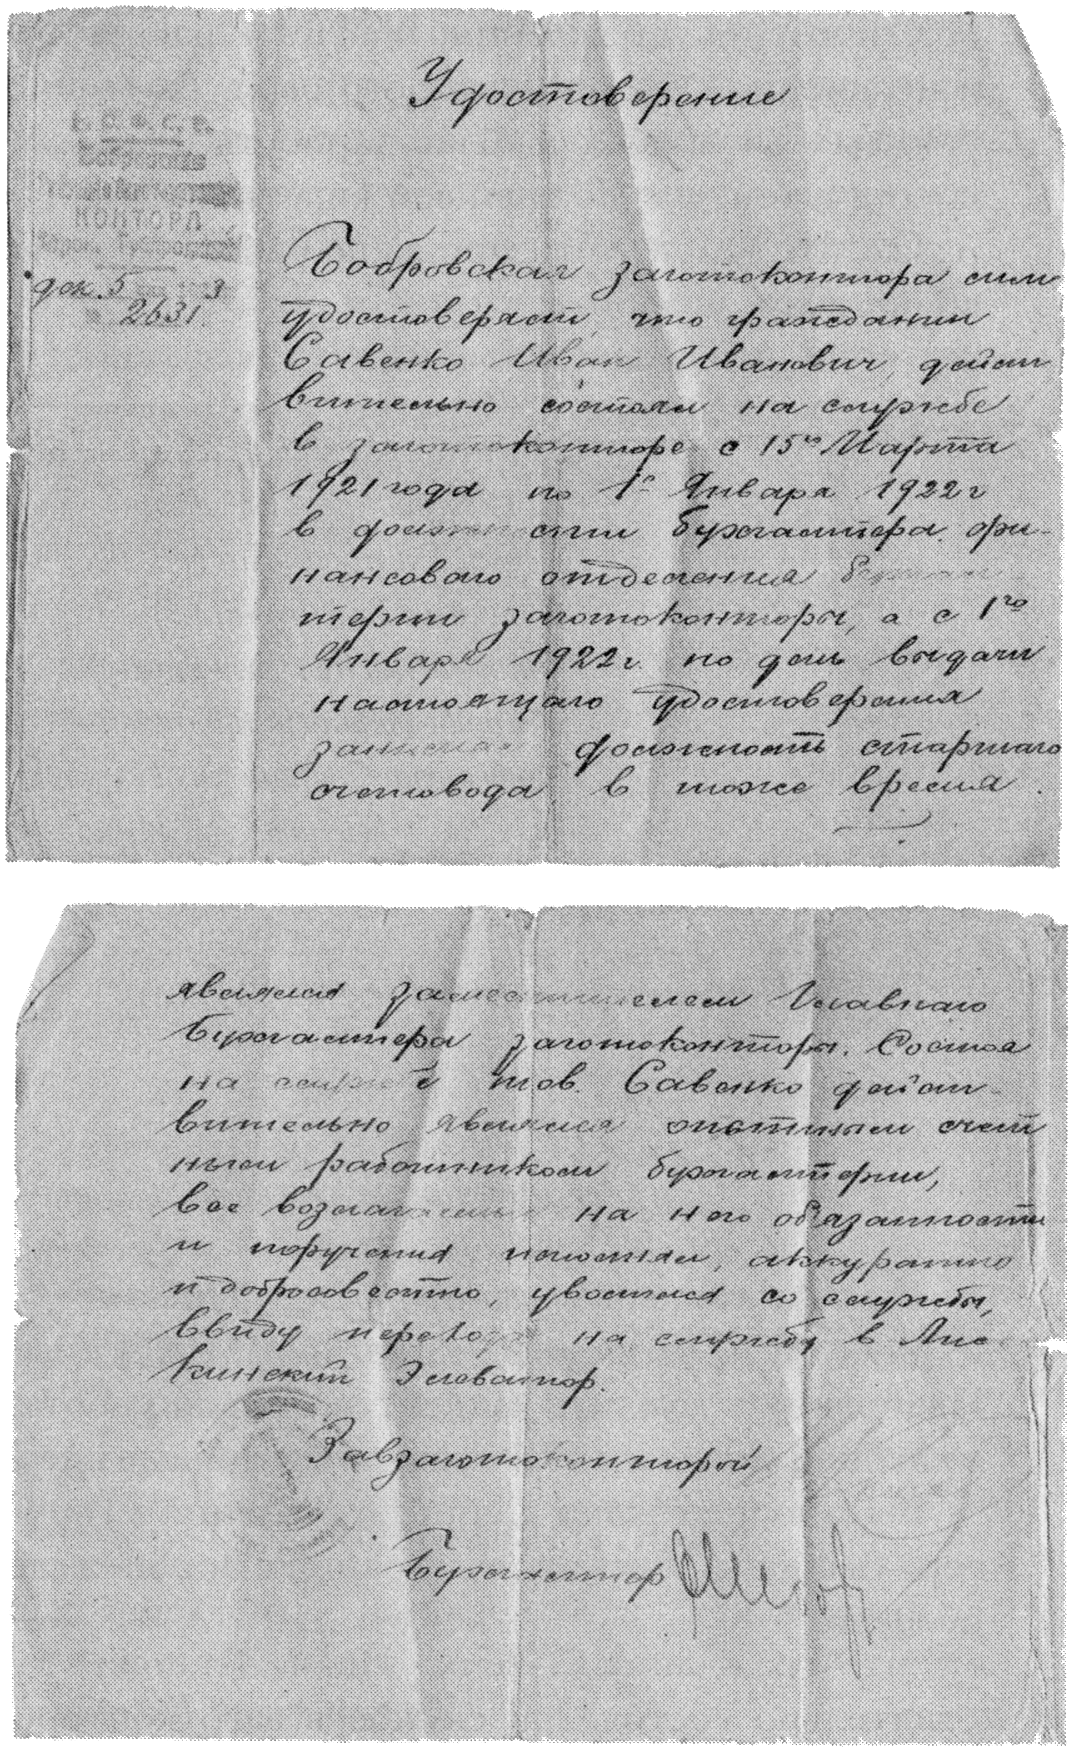 Удостоверение
Р. С. Ф. С. Р.
Бобровская
КОНТОРА
дек. 5 3
2631.
Бобровская заготоконтора сим
удостоверяет, что гражданин
Савенко Иван Иванович, дейст
вительно состоял на службе
в заготоконторе с 15го Марта
1921 года по 1е Января 1922 г
в должности бухгалтера фи-
нансоваго отделения бухгал
терии заготоконторы, а с 1го
Января 1922 г. по день выдачи
настоящаго удостоверения
занимал должность старшаго
счетовода в тоже время
являлся заместителем Главнаго
бухгалтера заготоконторы. Состоя
на службе тов. Савенко дейст-
вительно являлся опытным счет
ным работником бухгалтерии,
все возлагаемые на него обязанности
и поручения исполнял, аккуратно
и добросовестно, уволился со службы,
ввиду перехода на службу в Лис
кинский Элеватор.
Завзаготоконторой
Бухгалтер